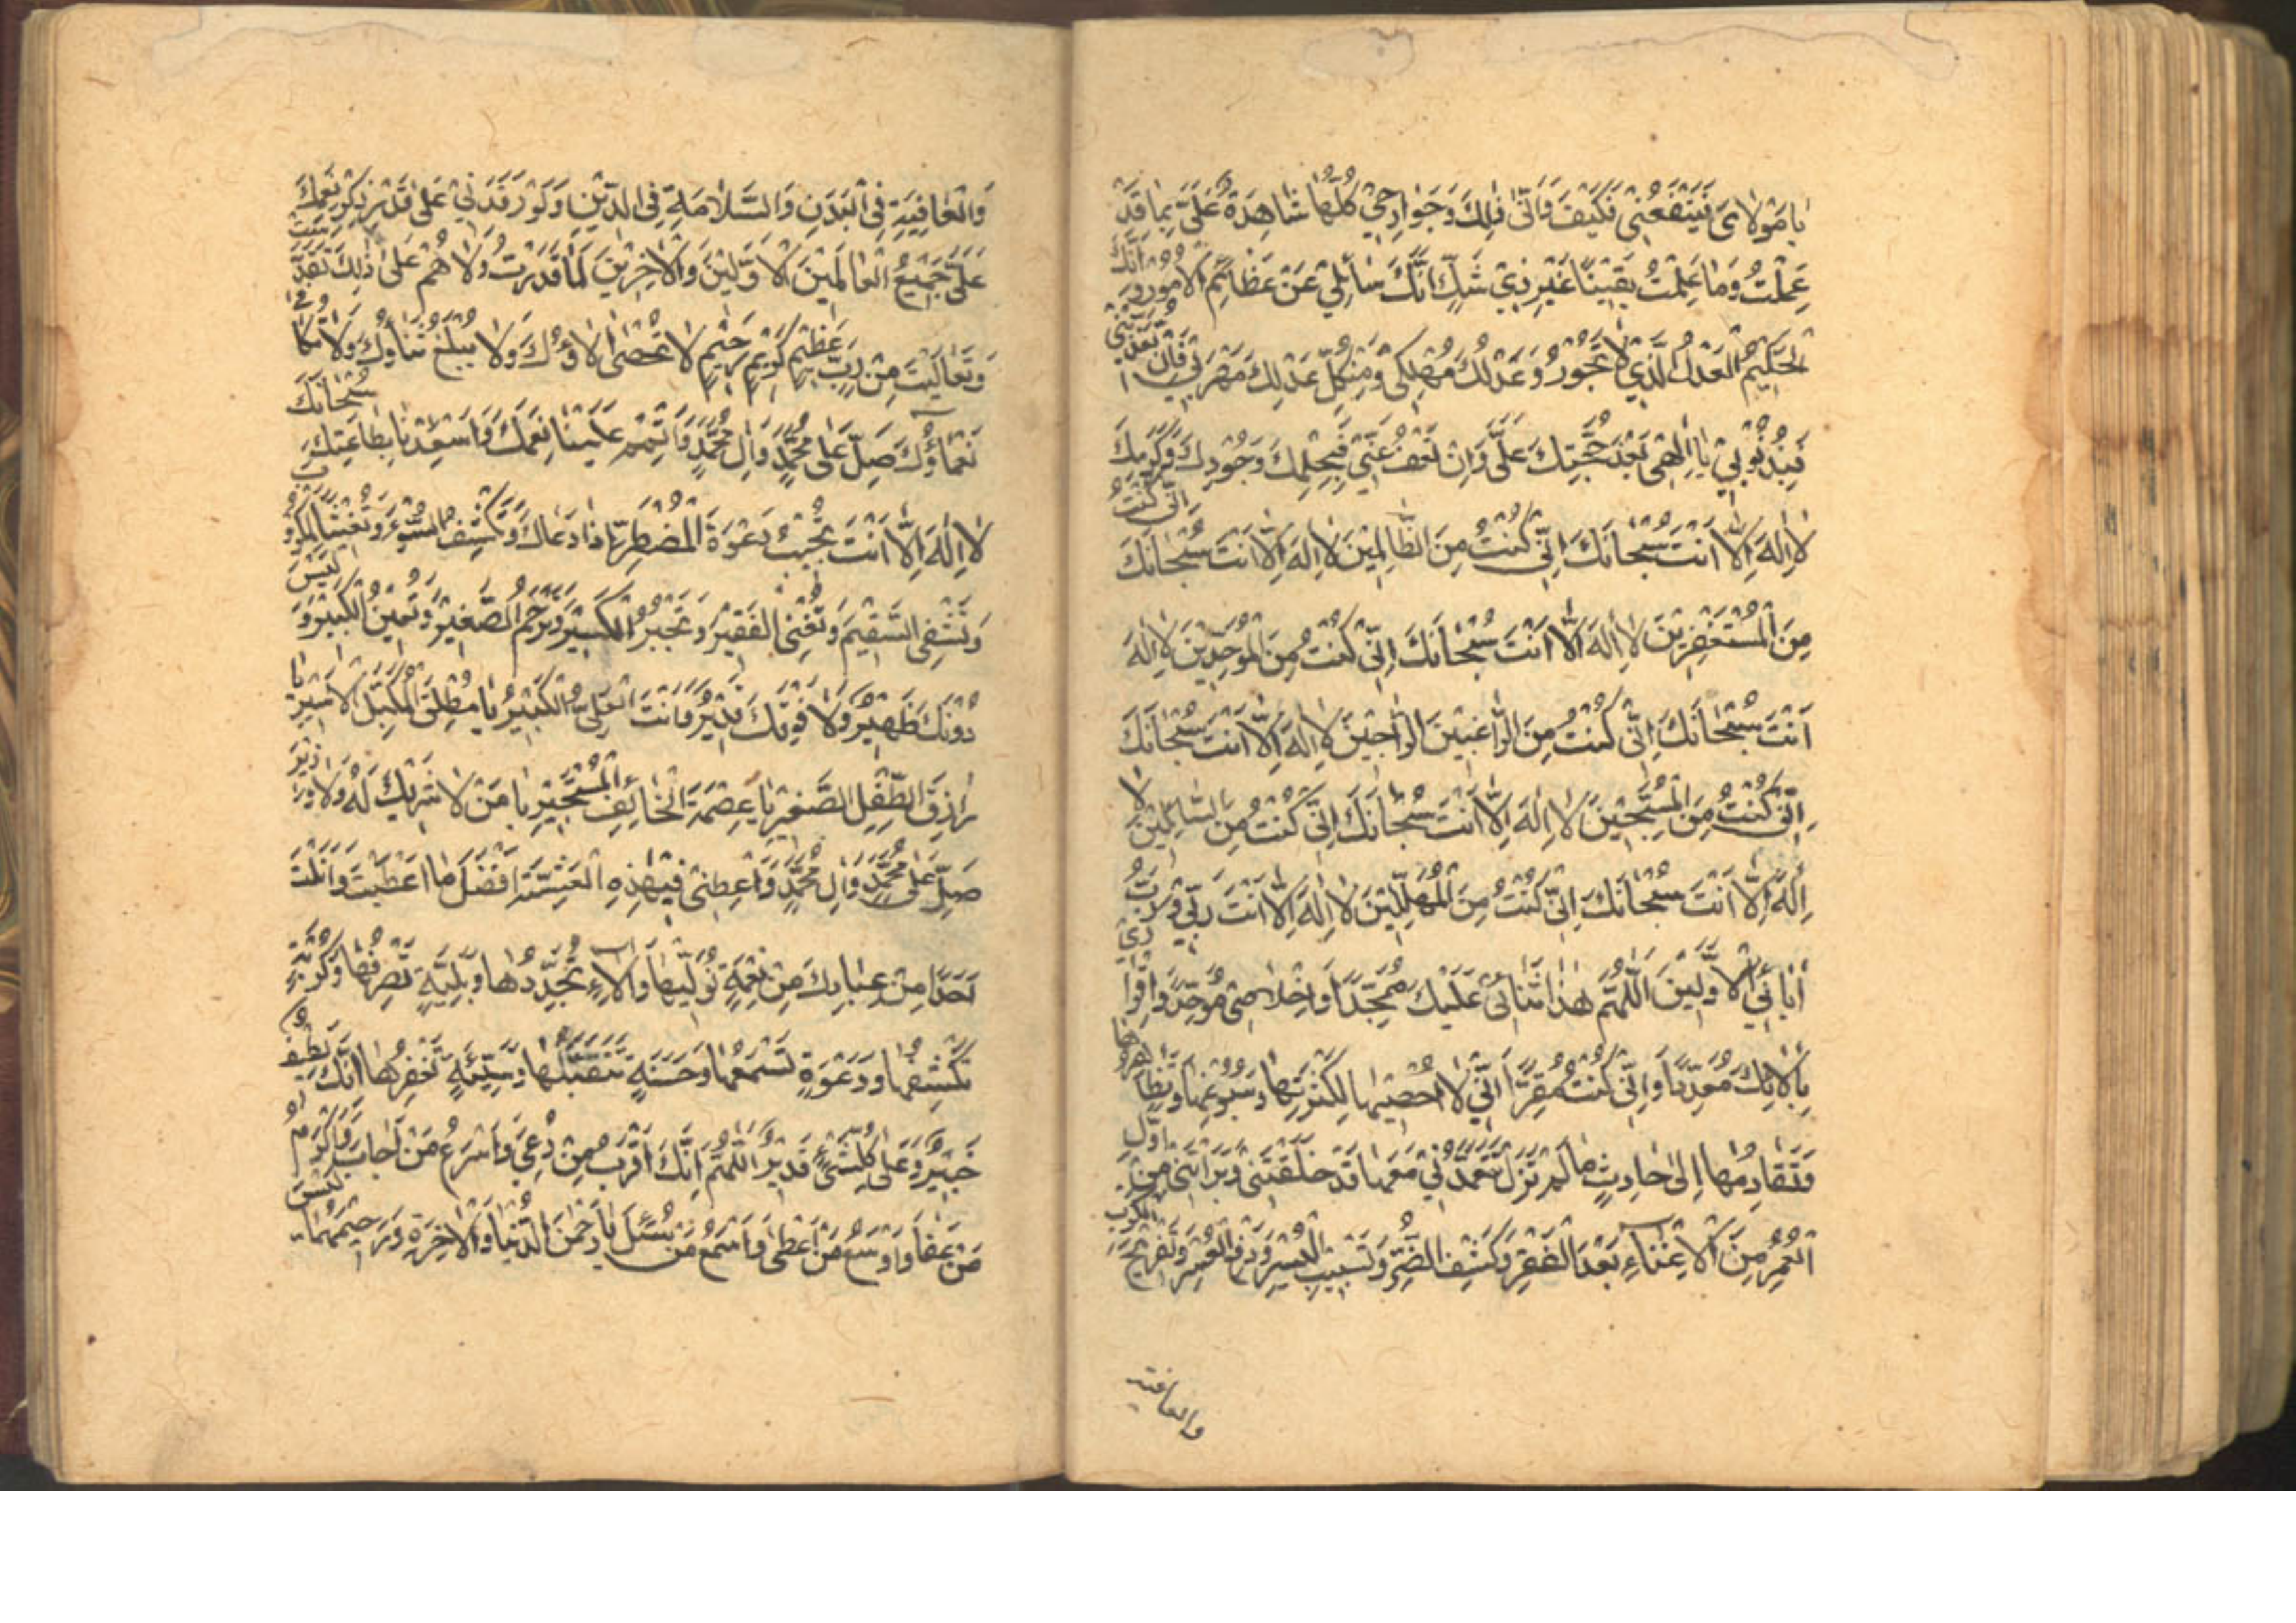 يا مَوْلايَ يَنْفَعُنِي فَكَيْفَ وَاَنّىٰ ذٰلِكَ وَجَوارِحِي كُلُّهٰا شاهِدَةٌ عَلَيَّ بِما قَدْ
عَمِلْتُ وَمٰا عَلِمْتُ يَقيْنًا غَيْرَ ذِيْ شَكٍّ اَنَّكَ سٰائِلِيْ عَنْ عَظٰائِمِ الْاُمُوْرِ وَ اَنَّكَ
الْحَكِيْمُ الْعَدْلُ الَّذِيْ لا تَجُوْرُ وَعَدْلُكَ مُهْلِكِيْ وَمِنْ كُلِّ عَدْلِكَ مَهْرَبِيْ فَاِنْ تُعَذِّبْنِيْ
فَبِذُنُوْبِيْ يٰا اِلٰهِيْ بَعْدَ حُجَّتِكَ عَلَيَّ وَاِنْ تَعْفُ عَنِّيْ فَبِحِلْمِكَ وَجُوْدِكَ وَكَرَمِكَ
لٰا اِلٰهَ اِلَّا اَنْتَ سُبْحٰانَكَ اِنِّيْ كُنْتُ مِنَ الظّٰالِمِيْنَ لٰا اِلٰهَ اِلَّا اَنْتَ سُبْحٰانَكَ اِنِّيْ كُنْتُ
مِنَ الْمُسْتَغْفِرِيْنَ لٰا اِلٰهَ اِلَّا اَنْتَ سُبْحٰانَكَ اِنِّيْ كُنْتُ مِنَ الْمُوَحِّدِيْنَ لٰا اِلٰهَ
اَنْتَ سُبْحٰانَكَ اِنِّيْ كُنْتُ مِنَ الرّٰاغِبِيْنَ الرّٰاجِيْنَ لٰا اِلٰهَ اِلَّا اَنْتَ سُبْحٰانَكَ
اِنِّيْ كُنْتُ مِنَ الْمُسَبِّحِيْنَ لٰا اِلٰهَ اِلَّا اَنْتَ سُبْحٰانَكَ اِنِّيْ كُنْتُ مِنَ السّٰائِلِيْنَ لٰا
اِلٰهَ اِلَّا اَنْتَ سُبْحٰانَكَ اِنِّيْ كُنْتُ مِنَ الْمُهَلِّلِيْنَ لٰا اِلٰهَ اِلَّا اَنْتَ رَبِّيْ وَرَبُّ
اٰبٰائِيَ الْاَوَّلِيْنَ اَللّٰهُمَّ هٰذٰا ثَنٰائِيْ عَلَيْكَ مُمَجِّدًا وَاِخْلاٰصِيْ مُوَحِّدًا وَاِقْرٰارِيْ
بِاٰلاٰئِكَ مُعَدِّدًا وَاِنِّيْ كُنْتُ مُقِرًّا اَنِّيْ لٰا اُحْصِيْهٰا لِكَثْرَتِهٰا وَسُبُوْغِهٰا وَتَظٰاهُرِهٰا
وَتَقٰادُمِهٰا اِلٰى حٰادِثٍ مٰا لَمْ تَزَلْ تَتَعَمَّدُنِيْ مَعَهٰا قَدْ خَلَقْتَنِيْ وَبَرَاْتَنِيْ مِنْ اَوَّلِ
الْعُمُرِ مِنَ الْاِغْنٰاءِ بَعْدَ الْفَقْرِ وَكَشْفِ الضُّرِّ وَتَسْبِيْبِ الْيُسْرِ وَدَفْعِ الْعُسْرِ وَتَفْرِيْجِ الْكَرْبِ
والعافية
وَالْعٰافِيَةِ فِي الْبَدَنِ وَالسَّلاٰمَةِ فِي الدِّيْنِ وَلَوْ رَفَدَنِيْ عَلٰى قَدْرِ ذِكْرِ نِعَمِكَ
عَلَيَّ جَمِيْعُ الْعٰالَمِيْنَ الْاَوَّلِيْنَ وَالْاٰخِرِيْنَ لَمٰا قَدَرْتُ وَلٰا هُمْ عَلٰى ذٰلِكَ تَقَدَّسْتَ
وَتَعٰالَيْتَ مِنْ رَبٍّ عَظِيْمٍ كَرِيْمٍ رَحِيْمٍ لٰا تُحْصٰى اٰلاٰؤُكَ وَلٰا يُبْلَغُ ثَنٰاؤُكَ وَلٰا تُكٰافٰى
نَعْمٰاؤُكَ صَلِّ عَلٰى مُحَمَّدٍ وَاٰلِ مُحَمَّدٍ وَاَتْمِمْ عَلَيْنٰا نِعَمَكَ وَاَسْعِدْنٰا بِطٰاعَتِكَ سُبْحٰانَكَ
لٰا اِلٰهَ اِلَّا اَنْتَ تُجِيْبُ دَعْوَةَ الْمُضْطَرِّ اِذٰا دَعٰاكَ وَتَكْشِفُ السُّوْءَ وَتُغِيْثُ الْمَكْرُوْبَ
وَتَشْفِي السَّقِيْمَ وَتُغْنِي الْفَقِيْرَ وَتَجْبُرُ الْكَسِيْرَ وَتَرْحَمُ الصَّغِيْرَ وَتُعِيْنُ الْكَبِيْرَ وَ لَيْسَ
دُوْنَكَ ظَهِيْرٌ وَلٰا فَوْقَكَ قَدِيْرٌ وَاَنْتَ الْعَلِيُّ الْكَبِيْرُ يٰا مُطْلِقَ الْمُكَبَّلِ الْاَسِيْرِ يٰا
رٰازِقَ الطِّفْلِ الصَّغِيْرِ يٰا عِصْمَةَ الْخٰائِفِ الْمُسْتَجِيْرِ يٰا مَنْ لٰا شَرِيْكَ لَهُ وَلٰا وَزِيْرَ
صَلِّ عَلٰى مُحَمَّدٍ وَاٰلِ مُحَمَّدٍ وَاَعْطِنِيْ فِيْ هٰذِهِ الْعَشِيَّةِ اَفْضَلَ مٰا اَعْطَيْتَ وَاَنَلْتَ
اَحَدًا مِنْ عِبٰادِكَ مِنْ نِعْمَةٍ تُوَلِّيْهٰا وَاٰلاٰءٍ تُجَدِّدُهٰا وَبَلِيَّةٍ تَصْرِفُهٰا وَكُرْبَةٍ
تَكْشِفُهٰا وَدَعْوَةٍ تَسْمَعُهٰا وَحَسَنَةٍ تَتَقَبَّلُهٰا وَسَيِّئَةٍ تَغْفِرُهٰا اِنَّكَ لَطِيْفٌ
خَبِيْرٌ وَعَلٰى كُلِّ شَيْءٍ قَدِيْرٌ اَللّٰهُمَّ اِنَّكَ اَقْرَبُ مِنْ دُعِيَ وَاَسْرَعُ مَنْ اَجٰابَ وَاَكْرَمُ
مَنْ عَفٰا وَاَوْسَعُ مَنْ اَعْطٰى وَاَسْمَعُ مَنْ سُئِلَ يٰا رَحْمٰنَ الدُّنْيٰا وَالْاٰخِرَةِ وَرَحِيْمَهُمٰا لَيْسَ